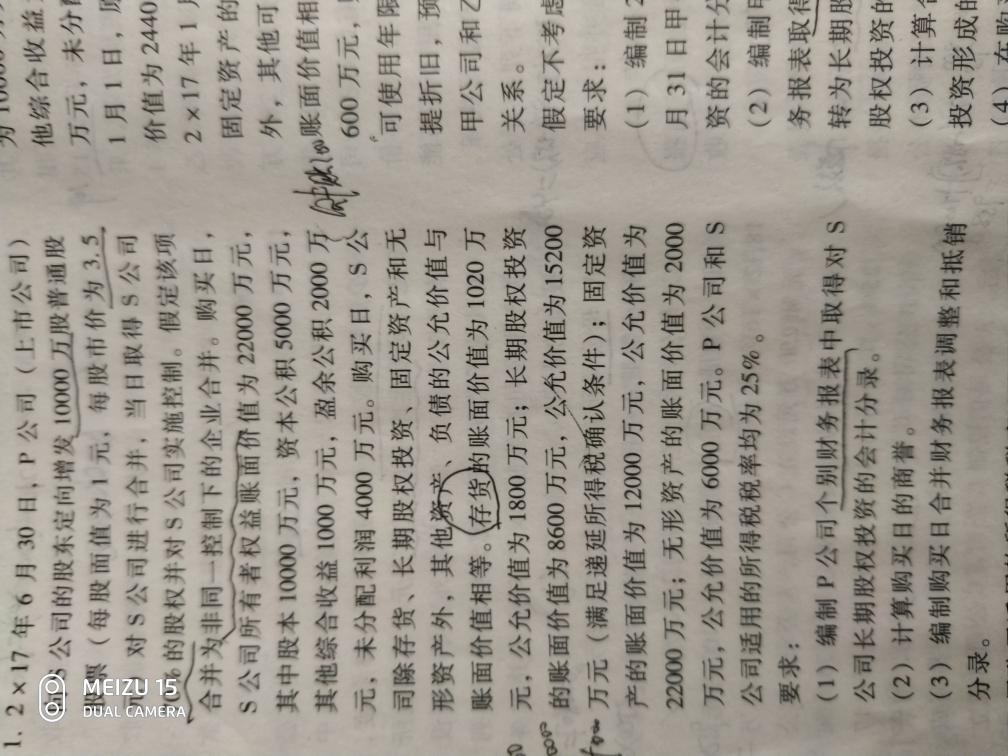 1. 2×17年6月30日，P公司（上市公司）
S公司的股东定向增发10000万股普通股
票（每股面值为1元，每股市价为3.5
对S公司进行合并，当日取得S公司
%的股权并对S公司实施控制。假定该项
合并为非同一控制下的企业合并。购买日，
S公司所有者权益账面价值为22000万元，
其中股本10000万元，资本公积5000万元，
其他综合收益1000万元，盈余公积2000万
元，未分配利润4000万元。购买日，S公
司除存货、长期股权投资、固定资产和无
形资产外，其他资产、负债的公允价值与
账面价值相等。存货的账面价值为1020万
元，公允价值为1800万元；长期股权投资
的账面价值为8600万元，公允价值为15200
万元（满足递延所得税确认条件）；固定资
产的账面价值为12000万元，公允价值为
22000万元；无形资产的账面价值为2000
万元，公允价值为6000万元。P公司和S
公司适用的所得税税率均为25%。
要求：
（1）编制P公司个别财务报表中取得对S
公司长期股权投资的会计分录。
（2）计算购买日的商誉。
（3）编制购买日合并财务报表调整和抵销
分录。
他综合收益
万元，未分
1月1日，
价值为2440
2×17年1月
固定资产的
外，其他可
账面价值相
600万元，
可使用年限
提折旧，预
甲公司和乙
关系。
假定不考虑
要求：
（1）编制2
月31日甲
资的会计分
（2）编制甲
务报表取得
转为长期股
股权投资的
（3）计算合
投资形成的
MEIZU 15
DUAL CAMERA